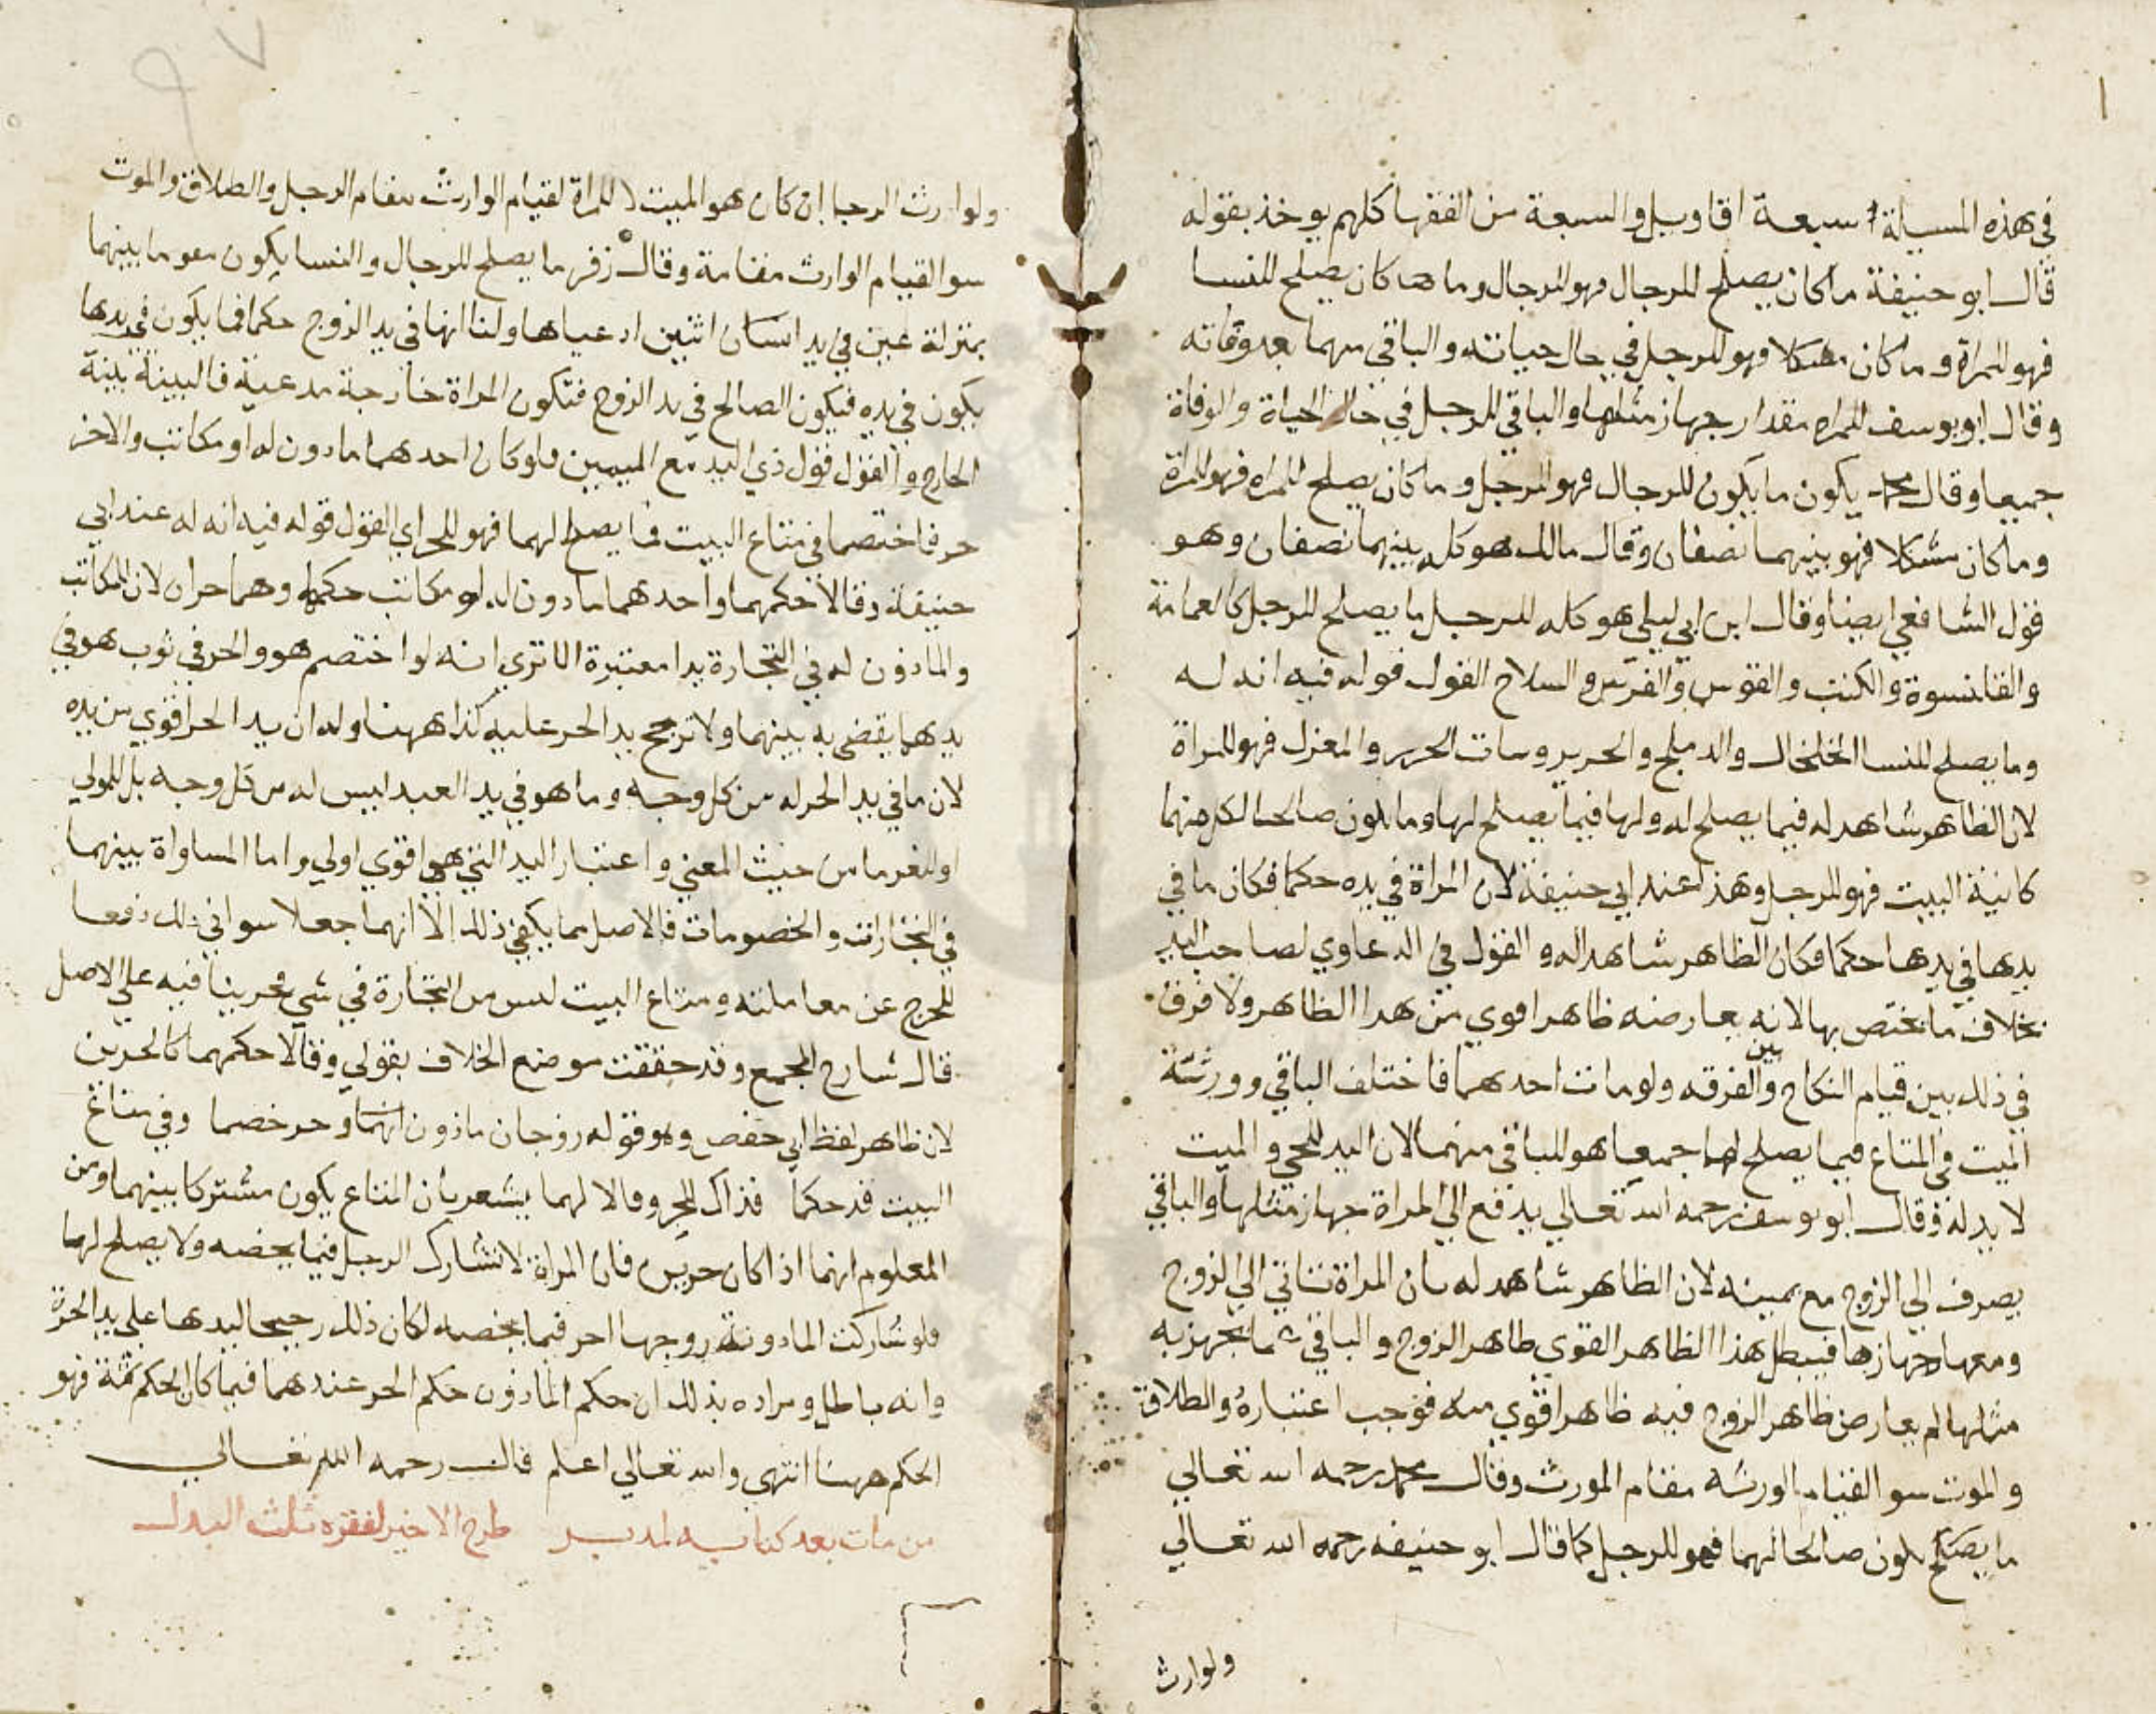 في هذه المسيلة سبعة اقاويل والسبعة من الفقها كلهم يوخذ بقوله
قال ابو حنيفة ما كان يصلح للرجال فهو للرجال وما كان يصلح للنسا
فهو للمراة وما كان مشكلا فهو للرجل في حال حياته والباقي منهما بعد وفاته
وقال ابو يوسف للمراه مقدار جهاز مثلها والباقي للرجل في حال الحياة والوفاة
جميعا وقال محمد يكون ما يكون للرجال فهو للرجل وما كان يصلح للمراه فهو للمراة
وما كان مشكلا فهو بينهما نصفان وقال مالك هو كله بينهما نصفان وهو
قول الشافعي ايضا وقال ابن ابي ليلى هو كله للرجل ما يصلح للرجل كالعمامة
والقلنسوة والكتب والقوس والفرس والسلاح القول قوله فيه انه له
وما يصلح للنسا الخلخال والدملج والحرير وسات الحرير والمغزل فهو للمراة
لان الظاهر شاهد له فيما يصلح له ولها فيما يصلح لها وما يكون صالحا لكل منهما
كانية البيت فهو للرجل وهذا عند ابي حنيفة لان المراة في يده حكما فكان ما في
يدها في يدها حكما فكان الظاهر شاهدا له والقول في الدعاوي لصاحب اليد
بخلاف ما يختص بها لانه يعارضه ظاهر اقوي من هدا الظاهر ولا فرق
في ذلك بين قيام النكاح وبين الفرقه ولو مات احدهما فاختلف الباقي وورثة
الميت في المتاع فيما يصلح لهما جميعا هو للباقي منهما لان اليد للحي والميت
لا يد له وقال ابو يوسف رحمه الله تعالي يدفع الي المراة جهاز مثلها والباقي
يصرف الي الزوج مع يمينه لان الظاهر شاهد له بان المراة تاتي الي الزوج
ومعها جهازها فيبطل هذا الظاهر القوي ظاهر الزوج والباقي عما يجهز به
مثلها لم يعارض ظاهر الزوج فيه ظاهر اقوي منه فوجب اعتباره والطلاق
والموت سوا لقيام الورثه مقام المورث وقال محمد رحمه الله تعالي
ما يصلح يكون صالحا لهما فهو للرجل كما قال ابو حنيفه رحمه الله تعالي
ولوارث
ولوارث الرجل ان كان هو الميت لا للمراة لقيام الوارث مقام الرجل والطلاق والموت
سوا لقيام الوارث مقامه وقال زفر ما يصلح للرجال والنسا يكون معو ما بينهما
بمنزلة عين في يد انسان اثنين ادعياها ولنا انها في يد الزوج حكما فما يكون في يدها
يكون في يده فيكون الصالح في يد الزوج فتكون المراة خارجة مدعية فالبينة بينة
الخارج والقول قول ذي اليد مع اليمين ولو كان احدهما ماذون له او مكاتب والاخر
حر فاختصما في متاع البيت فما يصلح لهما فهو للحر اي القول قوله فيه انه له عند ابي
حنيفة وقالا حكمهما واحدهما ماذون له او مكاتب حكمها وهما حران لان للمكاتب
والماذون له في التجارة يدا معتبرة الا تري انه لو اختصم هو والحر في ثوب هو في
يدهما يقضي به بينهما ولا ترجح يد الحر عليه كذا ههنا وله ان يد الحر اقوي من يده
لان ما في يد الحر له من كل وجه وما هو في يد العبد ليس له من كل وجه بل للمولي
او للغرما من حيث المعني واعتبار اليد التي هي اقوي اولي واما المساواة بينهما
في التجارات والخصومات فالاصل مما يكفي ذلك الا انهما جعلا سوا في ذلك دفعا
للحرج عن معاملته ومتاع البيت ليس من التجارة في شي فجرينا فيه علي الاصل
قال شارح المجمع وقد حققت موضع الخلاف بقولي وقالا حكمهما كالحرين
لان ظاهر لفظ ابي حفص وهو قوله زوجان ماذون انهما وحر خصما وفي متاع
البيت قد حكما فذاك للحر وقالا لهما يشعر بان المتاع يكون مشتركا بينهما ومن
المعلوم انهما اذا كان حرين فان المراة لا تشارك الرجل فيما يخصه ولا يصلح لها
فلو شاركت الماذونة زوجها الحر فيما يخصه لكان ذلك ترجيحا ليدها علي يد الحرة
وانه باطل ومراده بذلك ان حكم الماذون حكم الحر عندهما فيما كان الحكم ثمة فهو
الحكم ههنا انتهى والله تعالي اعلم قال رحمه الله تعالي
من مات بعد كتابيه لمدبر طرح الاخير لفقره ثلث البدل